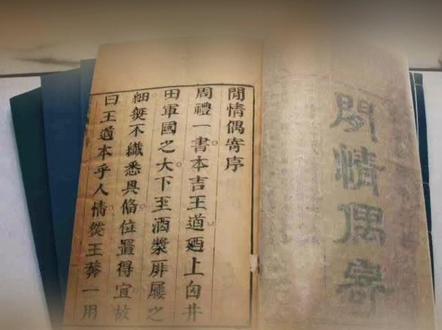 閒情偶寄
閒情偶寄序
周禮一書本言王道廼上自井
田軍國之大下至酒漿屝屨之
細無不纖悉具俻位置得宜故
曰王道本乎人情然王莽一用